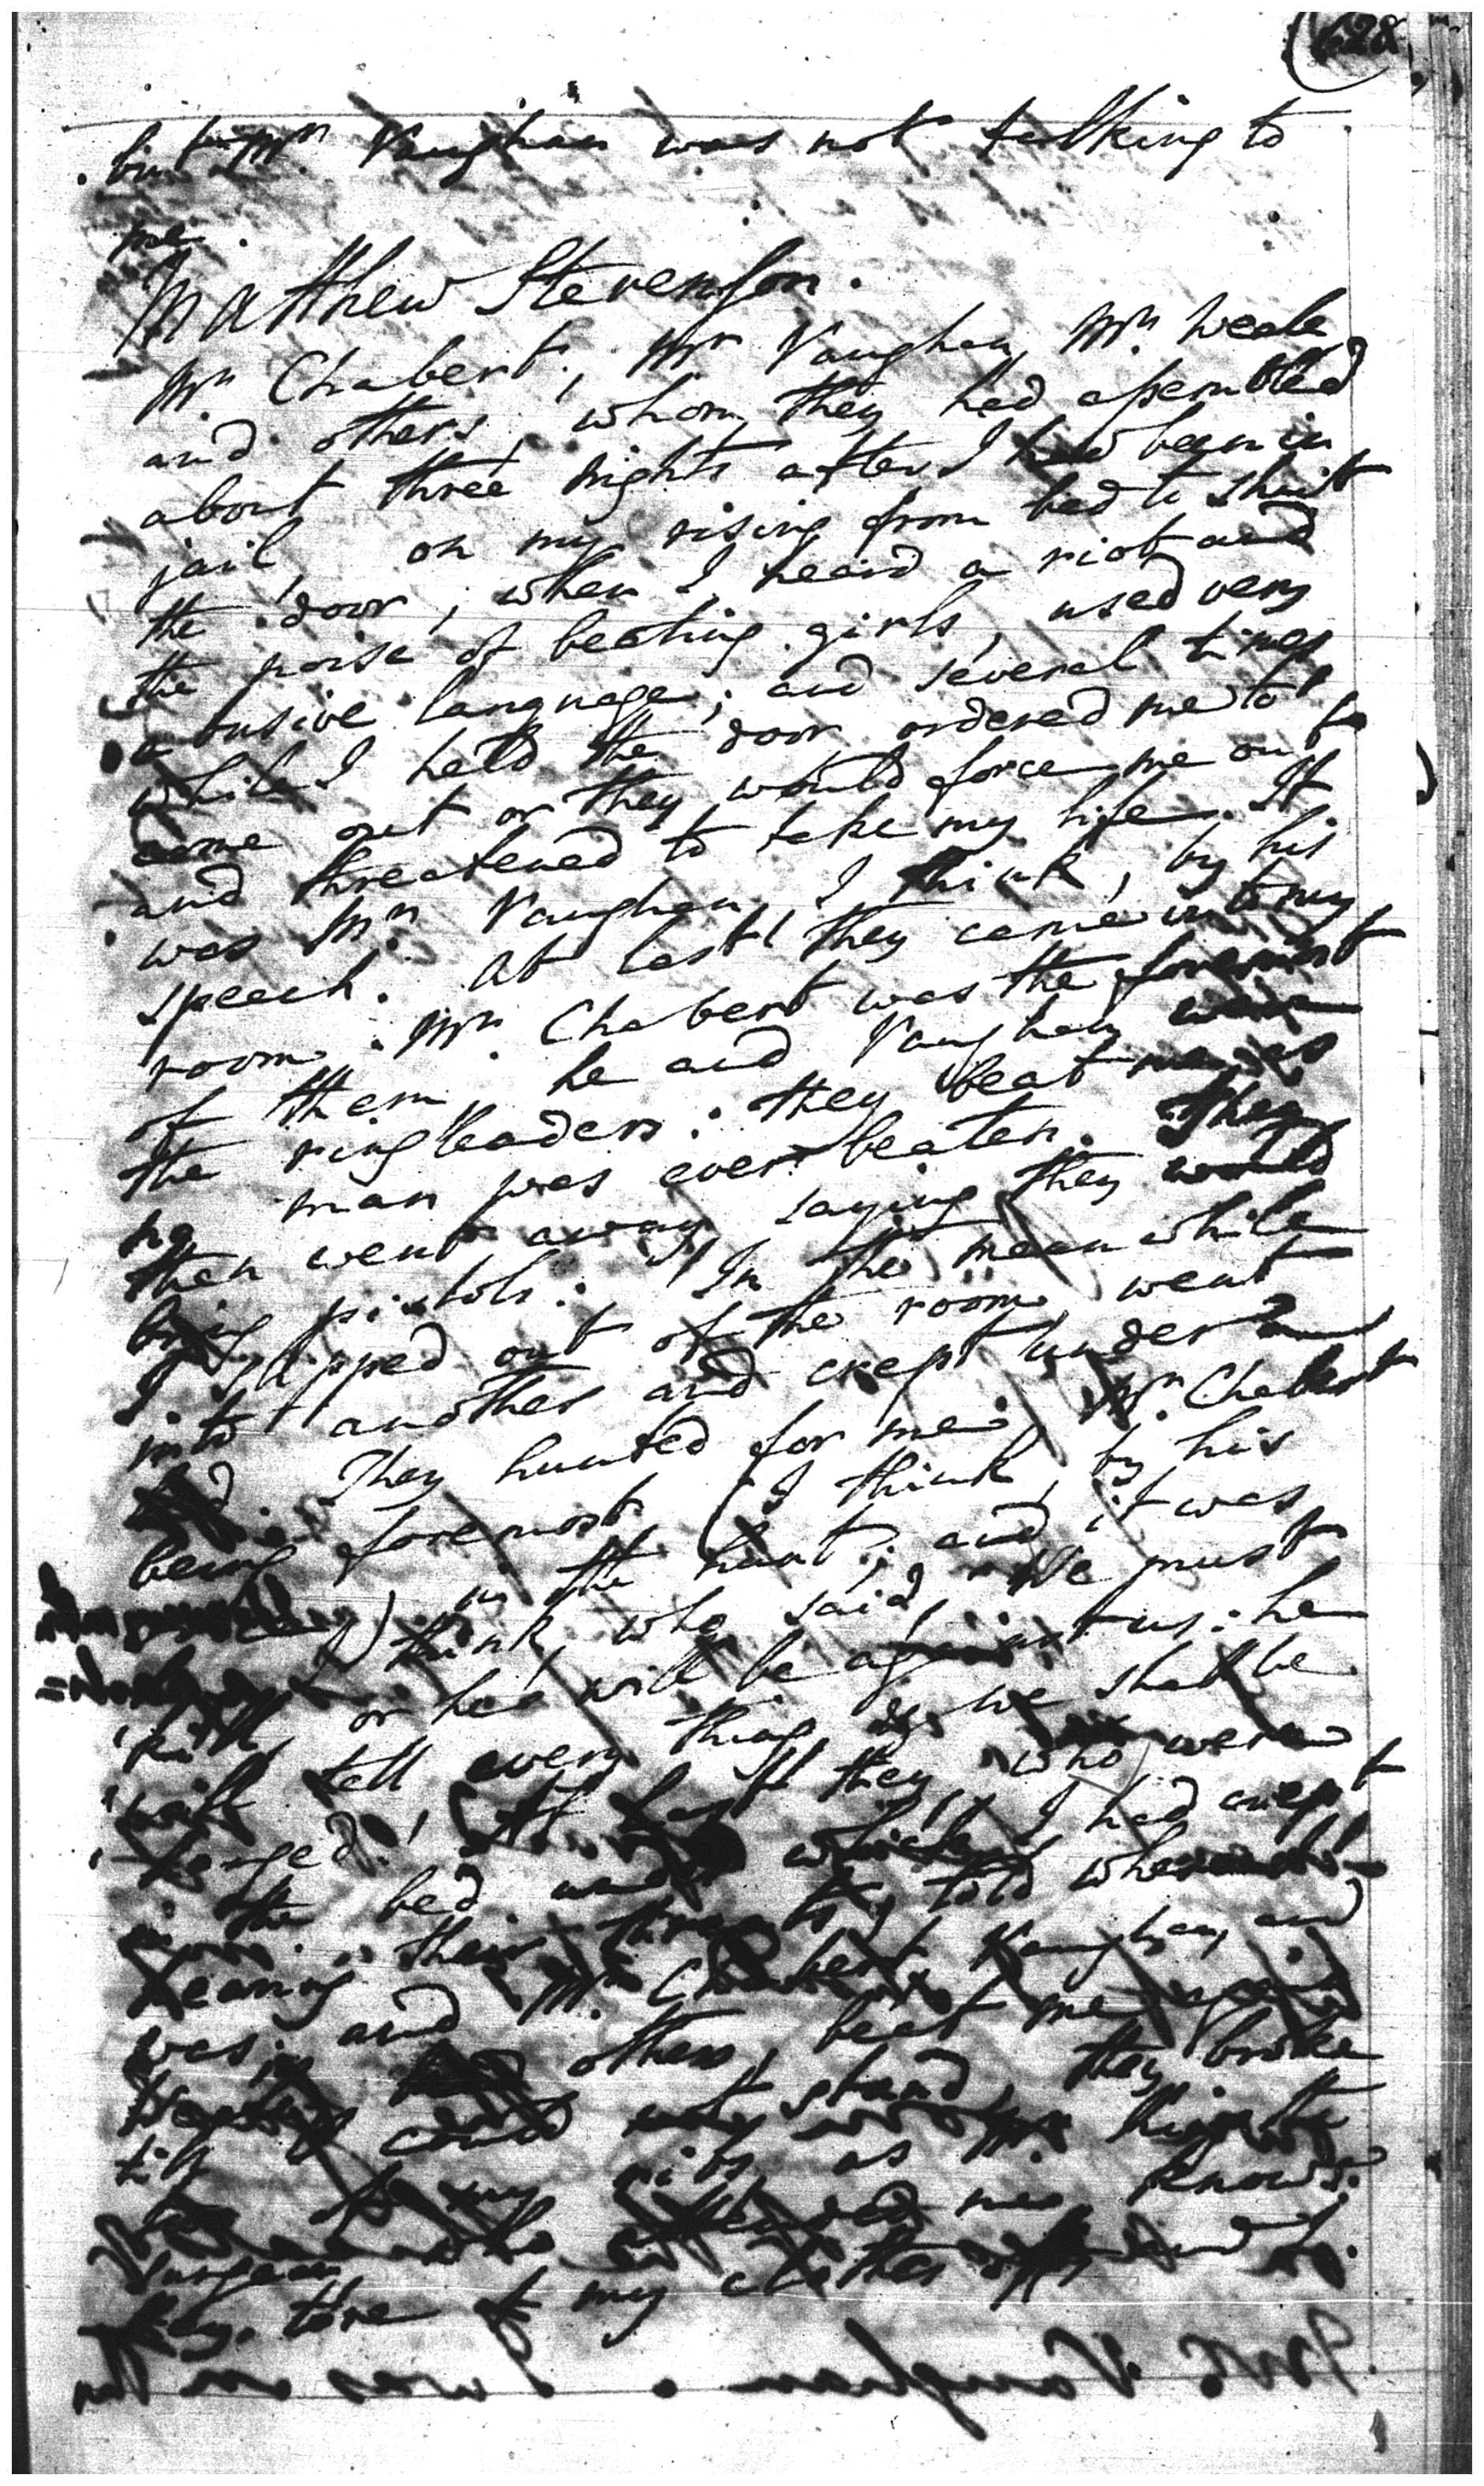 628
but Mr. Vaughan was not talking to
me.
Matthew Stevenson.
Mr. Chabert, Mr Vaughan, Mr. Weale
and others, whom they had assembled
about three nights after I had been in
jail, on my rising from bed to shut
the door, when I heard a riot and
the noise of beating girls, used very
abusive language; and several times
while I held the door ordered me to
come out or they would force me out
and threatened to take my life. It
was Mr. Vaughan, I think, by his
speech. At last they came into my
room. Mr. Chabert was the foremost
of them, he and Vaughan were
the ringleaders: they beat me, as
no man was ever beaten. They
then went away saying they would
bring pistols. In the mean while
I slipped out of the room, went
into another and crept under a
bed. They hunted for me, Mr. Chabert
being foremost (I think, by his
in the hunt; and it was
I think, who said, "We must
'kill, or he will be against us: he
'will tell every thing, & we shall be
'hanged.' At last they, who were
in the bed under which I had crept
hearing their threats, told where I
was; and Mr. Chabert, Vaughan, and
others, beat me again
till I could not stand, they broke
two of my ribs, as the
Surgeon who attended me knows.
they tore my clothes off and